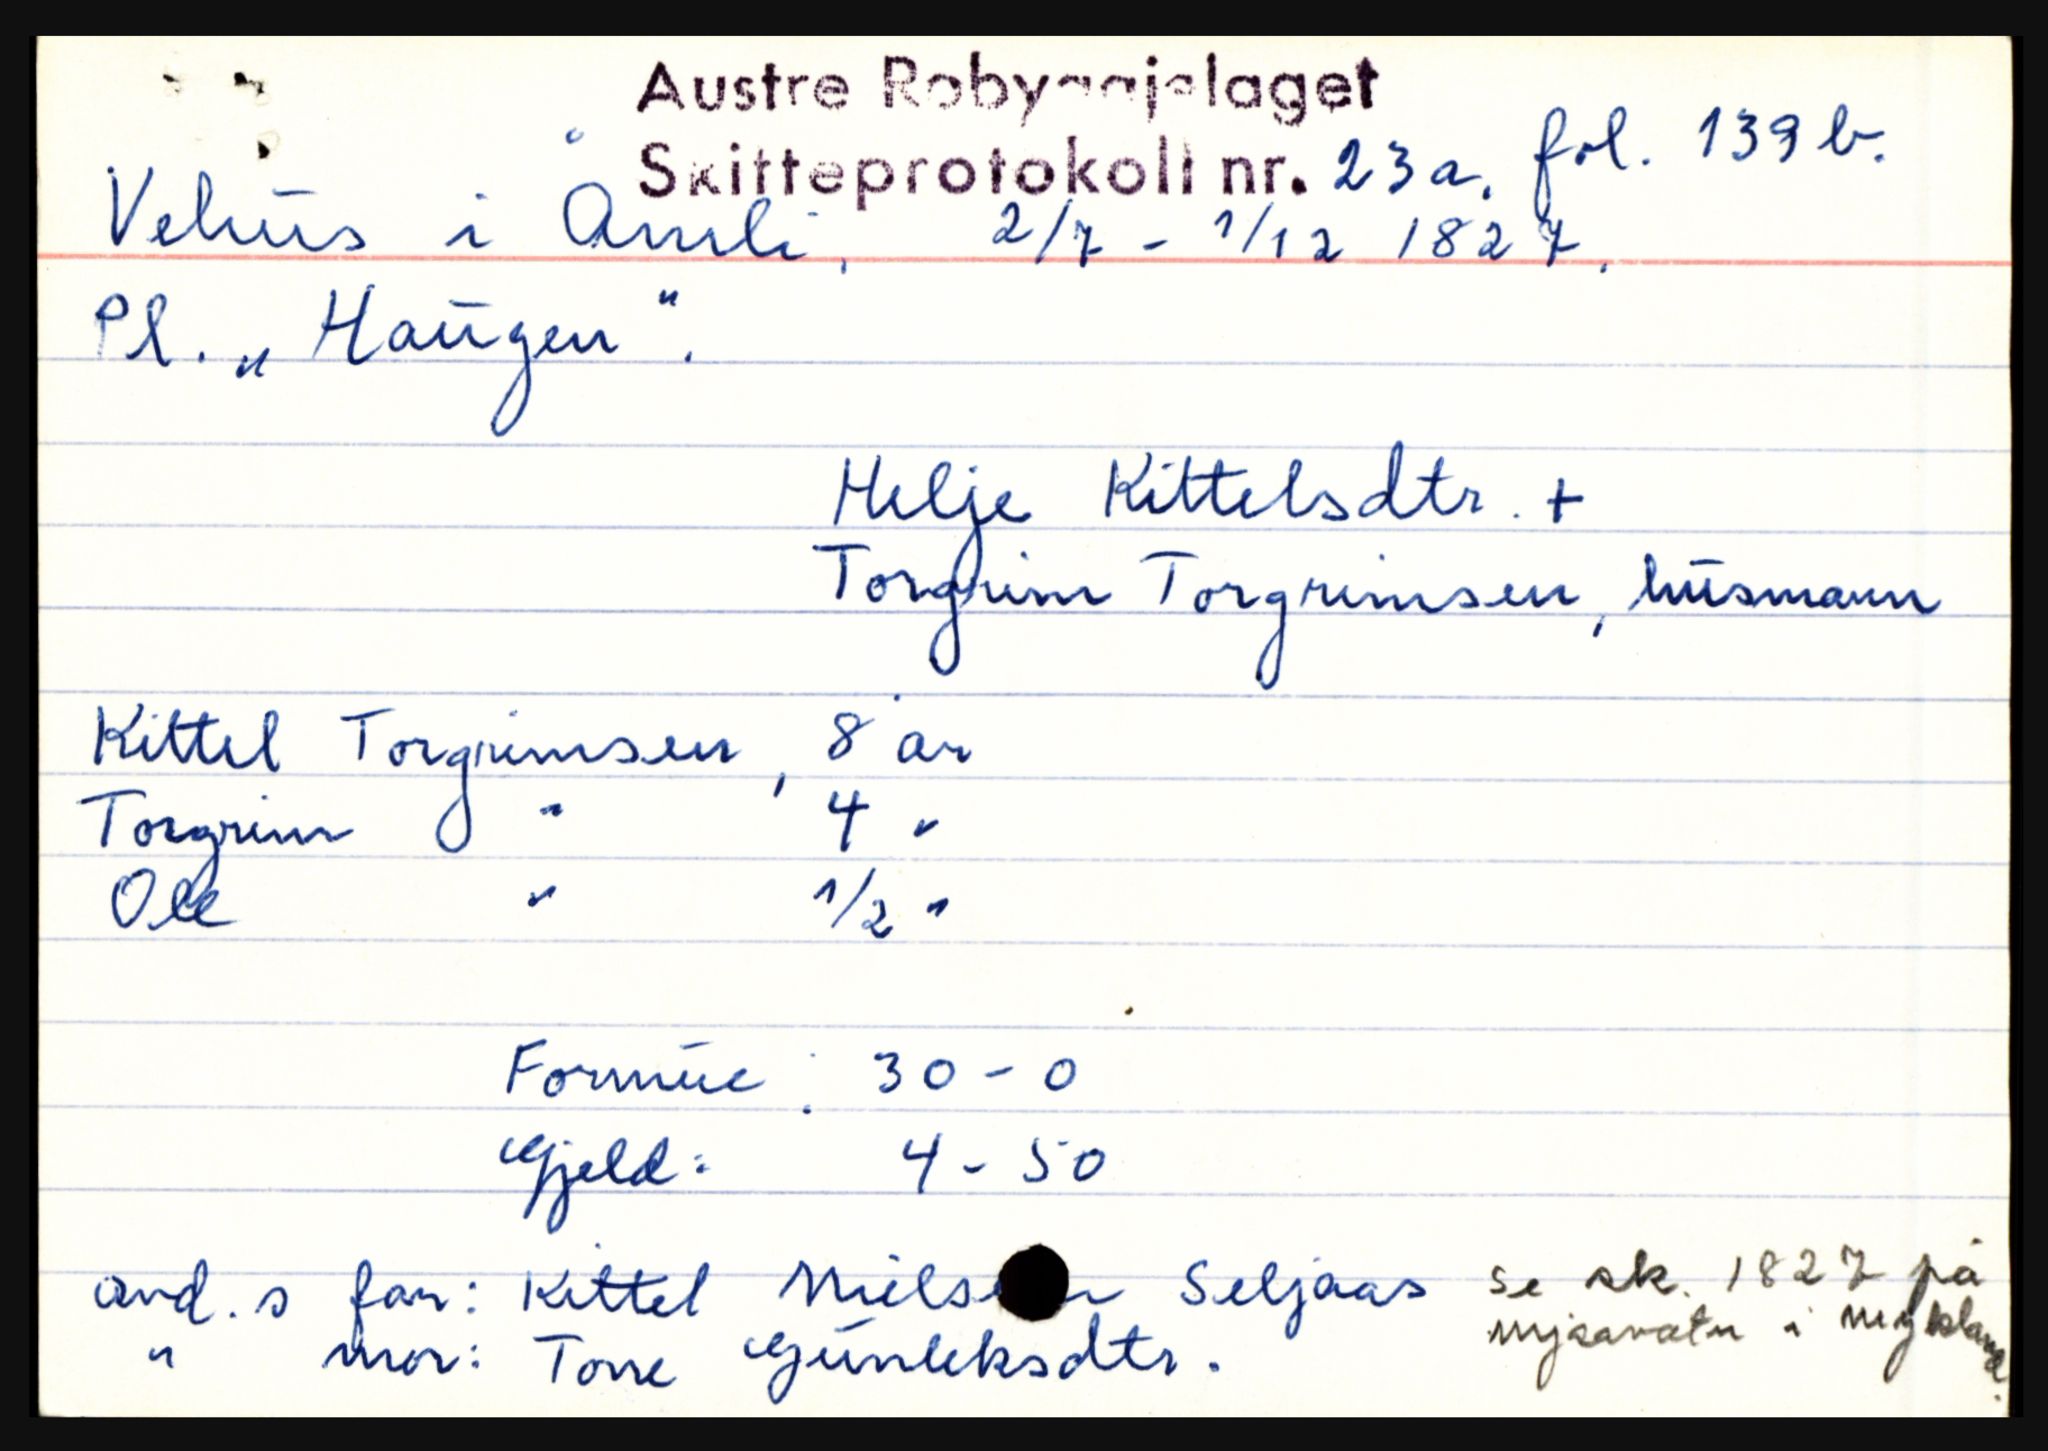 Austre Robyggjelaget
Skifteprotokoll nr. 23a. fol. 139 b.
Vehus i Åmli, 2/7 - 1/12 1827.
Pl. „Haugen".
Helje Kittelsdtr. +
Torgrim Torgrimsen, husmann
Kittel Torgrimsen, 8 år
Torgrim " 4 "
Ole " 1/2 "
Formue: 30 - 0
Gjeld: 4 - 50
avd. s far: Kittel Nielsen Seljaas
" mor: Tone Gunleksdtr.
se sk. 1827 på
i Mykland.